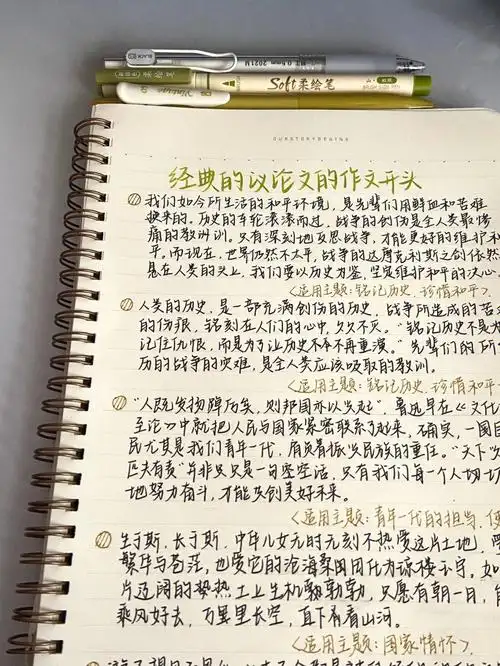 BLACK
0.5mm 2021M
Soft柔绘笔
BRUSH SIGN PEN
Vintage
OURSTORYBEGINS
经典的议论文的作文开头
我们如今所生活的和平环境，是先辈们用鲜血和苦难
换来的。历史的车轮滚滚而过，战争的创伤是全人类最惨
痛的教训。只有深刻地反思战争，才能更好的维护和
平。而现在，世界仍然不太平，战争的达摩克利斯之剑依然
悬在人类的头上，我们要以历史为鉴，坚定维护和平的决心。
＜适用主题：铭记历史，珍惜和平＞
人类的历史，是一部充满创伤的历史，战争所造成的苦
的伤痕，铭刻在人们的心中，久久不灭。“铭记历史不是为
记住仇恨，而是为了让历史不再重演。”先辈们的所
历的战争的灾难，是全人类应该吸取的教训。
＜适用主题：铭记历史，珍惜和平
“人既发扬踔厉矣，则邦国亦以兴起”，鲁迅早在《文化
至论》中就把人民与国家紧密联系了起来，确实，一国
民尤其是我们青年一代，肩负着振兴民族的重任。“天下兴
匹夫有责”并非只是一句空空话，只有我们每一个人切切
地努力奋斗，才能共创美好未来。
＜适用主题：青年一代的担当，
生于斯，长于斯，中华儿女无时无刻不热爱这片土地，
繁华与苍茫，也爱它的沧海桑田
片辽阔的 热土上生机勃勃，只愿有朝一日，
乘风好去，万里长空，直下看山河。
＜适用主题：国家情怀＞